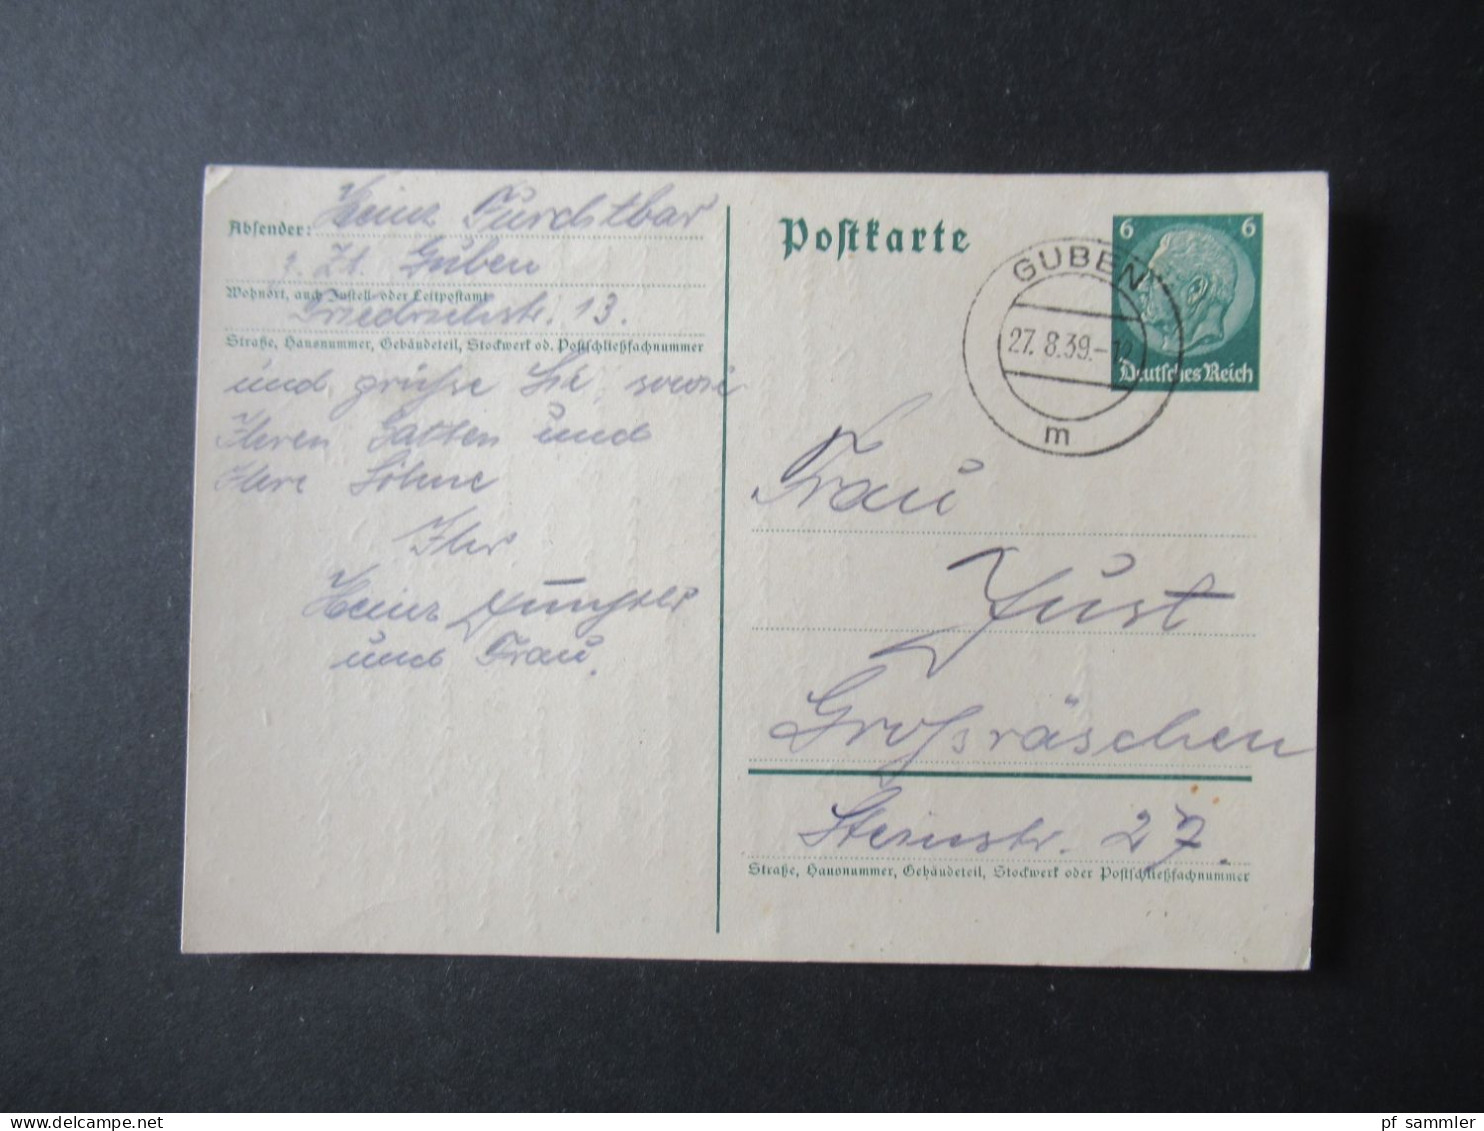 Absender: Heinz Furchtbar
z. Zt. Guben
Wohnort, auch Zustell- oder Leitpostamt
Friedrichstr. 13.
Straße, Hausnummer, Gebäudeteil, Stockwerk od. Postschließfachnummer
und grüße Sie, sowie
Ihren Gatten und
Ihre Söhne
Ihr
Heinz
und Frau.
Postkarte
6 6
Deutsches Reich
GUBEN
27.8.39.-12
m
Frau
Just
Großräschen
Steinstr. 27.
Straße, Hausnummer, Gebäudeteil, Stockwerk oder Postschließfachnummer
delcampe.net
pf_sammler